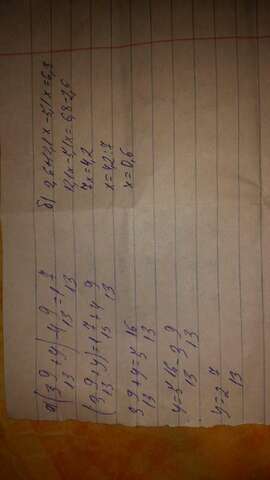 а) (3 9/13 + y) - 4 9/13 = 1 7/13
(3 9/13 + y) = 1 7/13 + 4 9/13
3 9/13 + y = 5 16/13
y = 5 16/13 - 3 9/13
y = 2 7/13
б) 2,6+12,1x-5,1x=6,8
12,1x-5,1x=6,8-2,6
7x=4,2
x=4,2:7
x=0,6